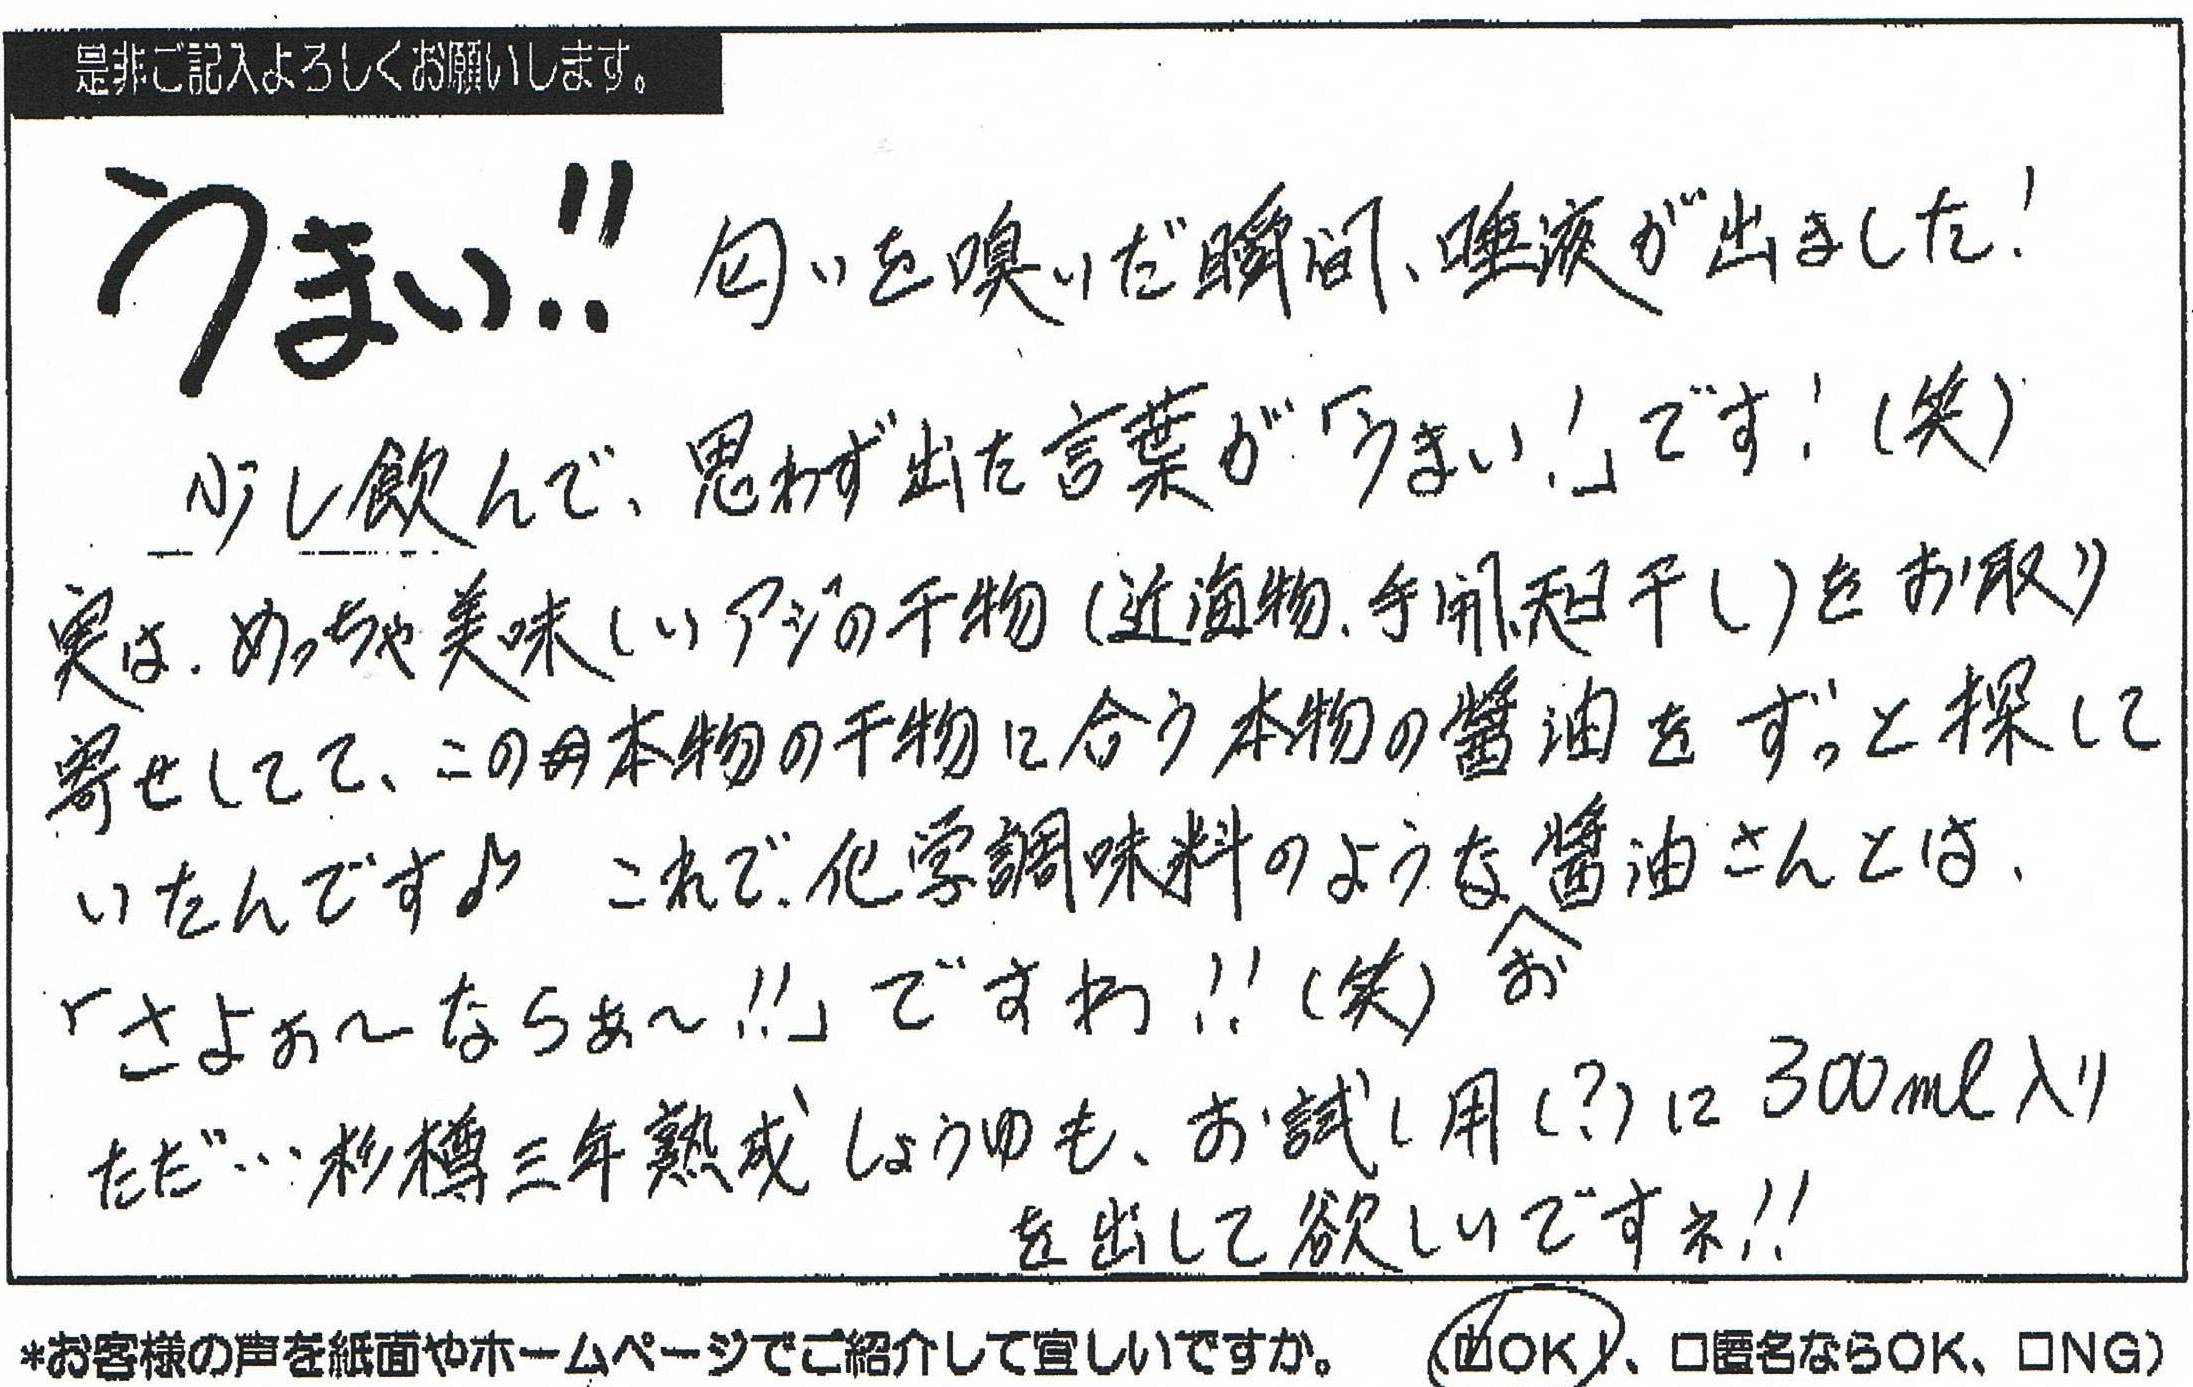 是非ご記入よろしくお願いします。
うまい!! 匂いを嗅いだ瞬間、唾液が出ました!
少し飲んで、思わず出た言葉が「うまい!」です!(笑)
実は、めっちゃ美味しいアジの干物(近海物、手開、天日干し)をお取り
寄せしてて、この本物の干物に合う本物の醤油をずっと探して
いたんです♪ これで、化学調味料のようなお醤油さんとは、
「さよぉ〜ならぁ〜!!」ですわ!!(笑)
ただ…杉樽三年熟成しょうゆも、お試し用(?)に300ml入り
を出して欲しいですネ!!
*お客様の声を紙面やホームページでご紹介して宜しいですか。 (☑OK!、□匿名ならOK、□NG)